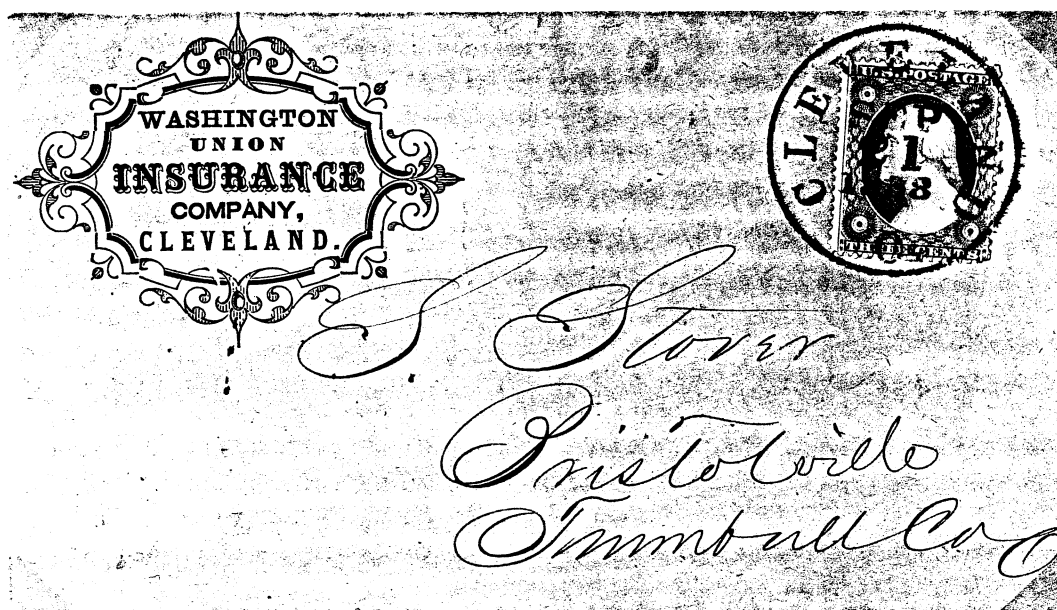 WASHINGTON
UNION
INSURANCE
COMPANY,
CLEVELAND.
CLEVELAND
SEP
1
U.S. POSTAGE
THREE CENTS
S. Stover
Bristolville
Trumbull Co